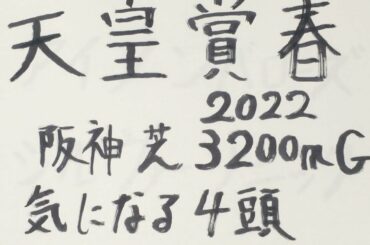 天皇賞春
2022
阪神芝3200mG
気になる4頭